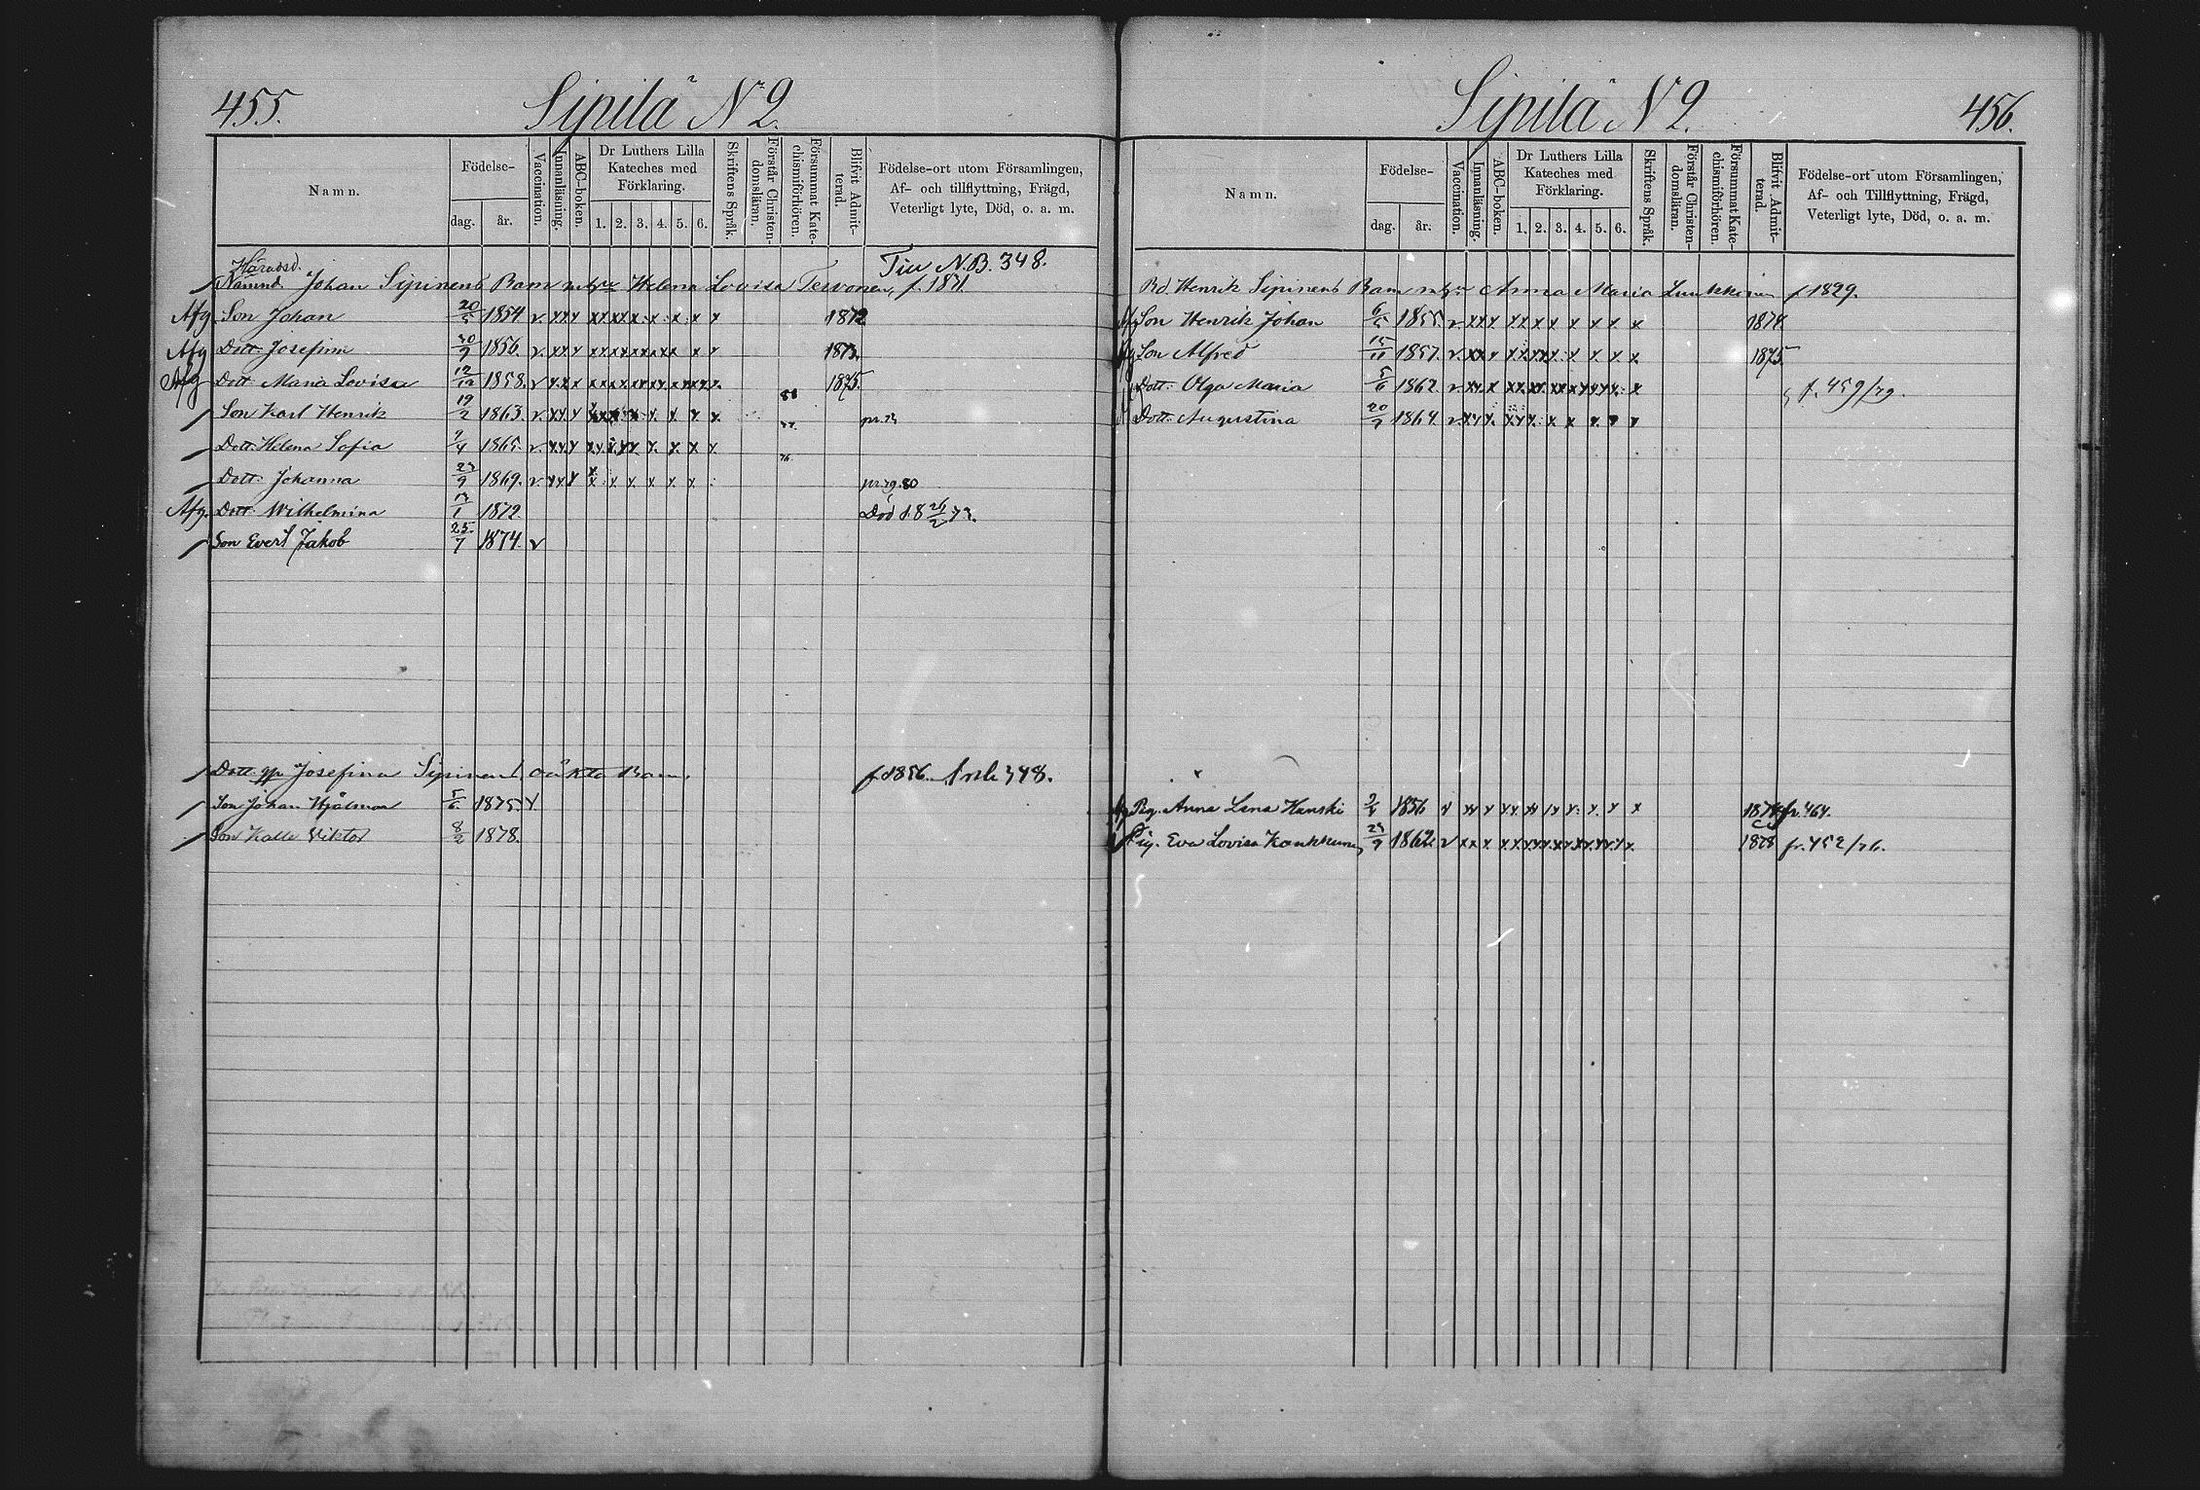 455. Sipilä N 2.
Namn.
Födelse-
dag.
år.
Vaccination.
Innanläsning.
ABC-boken.
Dr Luthers Lilla
Kateches med
Förklaring.
1. 2. 3. 4. 5. 6.
Skriftens Språk.
Förstår Christen-
domsläran.
Försummat Kate-
chismiförhören.
Blifvit Admit-
terad.
Födelse-ort utom Församlingen,
Af- och tillflyttning, Frägd,
Veterligt lyte, Död, o. a. m.
Till N.B. 348.
Häradsd.
Nämnd. Johan Sipinens Barn m hu Helena Lovisa Tervonen, f. 1871.
Afg Son Johan 20/5 1854 v x x x x x x x x x x x 1872
Afg Dott. Josefina 30/9 1856. v. x x x x x x x x x x x x x 1873.
Afg Dott Maria Lovisa 12/12 1858. v x x x x x x x x x x x x x x 1875.
Son Karl Henrik 19/2 1863. v. x x x x x x x x x x x
Dott. Helena Sofia 9/4 1865. v x x x x x x x x x x x 76
Dott. Johanna 23/9 1869. v x x x x x x x x x pr 79. 80
Afg. Dott. Wilhelmina 1872. Död
Son Evert Jakob 25/7 1874. v
Dott. Josefina Sipinens oäkta Barn. f. 1856. 348.
Son Johan Hjalmar 5/6 1875 v
Son Kalle Viktor 8/2 1878.
Sipilä N 2. 456.
Namn.
Födelse-
dag.
år.
Vaccination.
Innanläsning.
ABC-boken.
Dr Luthers Lilla
Kateches med
Förklaring.
1. 2. 3. 4. 5. 6.
Skriftens Språk.
Förstår Christen-
domsläran.
Försummat Kate-
chismiförhören.
Blifvit Admit-
terad.
Födelse-ort utom Församlingen,
Af- och Tillflyttning, Frägd,
Veterligt lyte, Död, o. a. m.
Bd Henrik Sipinens Barn m hu Anna Maria Luukkonen f 1829.
Son Henrik Johan 6/5 1855. v. x x x x x x x x x x x 1874.
Son Alfred 15/11 1857. v. x x x x x x x x x x x 1875.
Dott. Olga Maria 5/6 1862 v. x x x x x x x x x x x x f. 459/79.
Dott. Augustina 20/9 1864. v x x x x x x x x x x x
Pig. Anna Lena Hanski 1856 v x x x x x x x x x x x 1874 fr. 464.
Pig. Eva Lovisa 29/9 1862 v x x x x x x x x x x x x 1878 fr. 452/76.